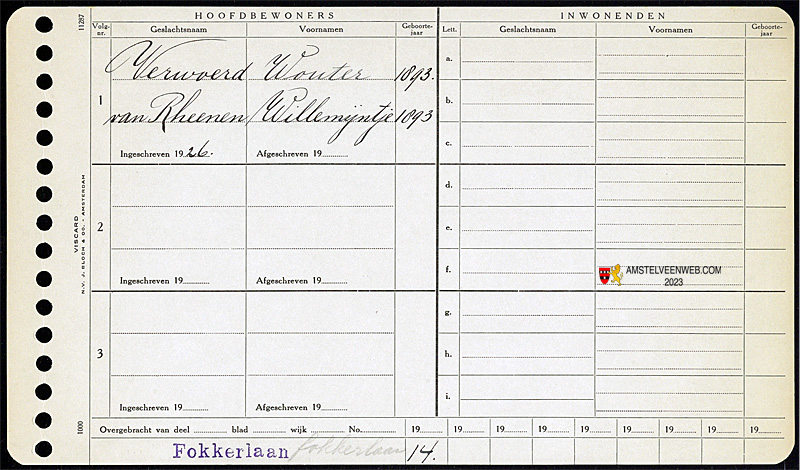 HOOFDBEWONERS
INWONENDEN
Volg-nr.
Geslachtsnaam
Voornamen
Geboorte-jaar
Lett.
Geslachtsnaam
Voornamen
Geboorte-jaar
11287
1
Verwoerd Wouter 1893.
van Rheenen Willemijntje 1893
Ingeschreven 1926. Afgeschreven 19
2
Ingeschreven 19 Afgeschreven 19
3
Ingeschreven 19 Afgeschreven 19
a.
b.
c.
d.
e.
f.
g.
h.
i.
AMSTELVEENWEB.COM
2023
VISCARD
N.V. J. BLOCH & CO. - AMSTERDAM
1000
Overgebracht van deel blad wijk No. 19 19 19 19 19 19 19 19 19
Fokkerlaan fokkerlaan 14.